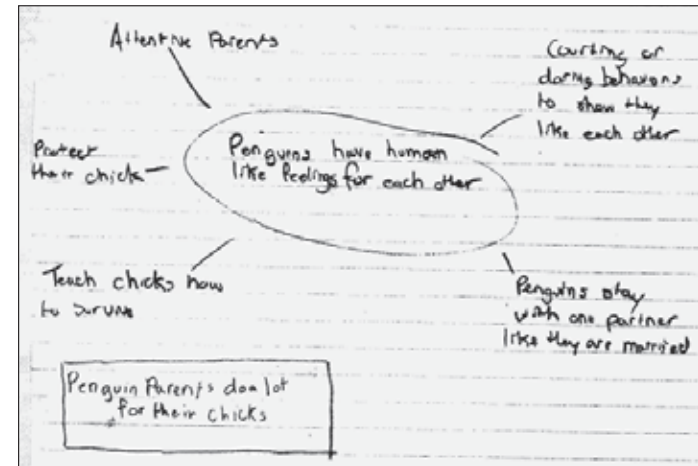 Attentive Parents
Courting or
dating behaviors
to show they
like each other
Penguins have human
like feelings for each other
Protect
their chick
Teach chicks how
to survive
Penguins stay
with one partner
like they are married
Penguin Parents do a lot
for their chicks